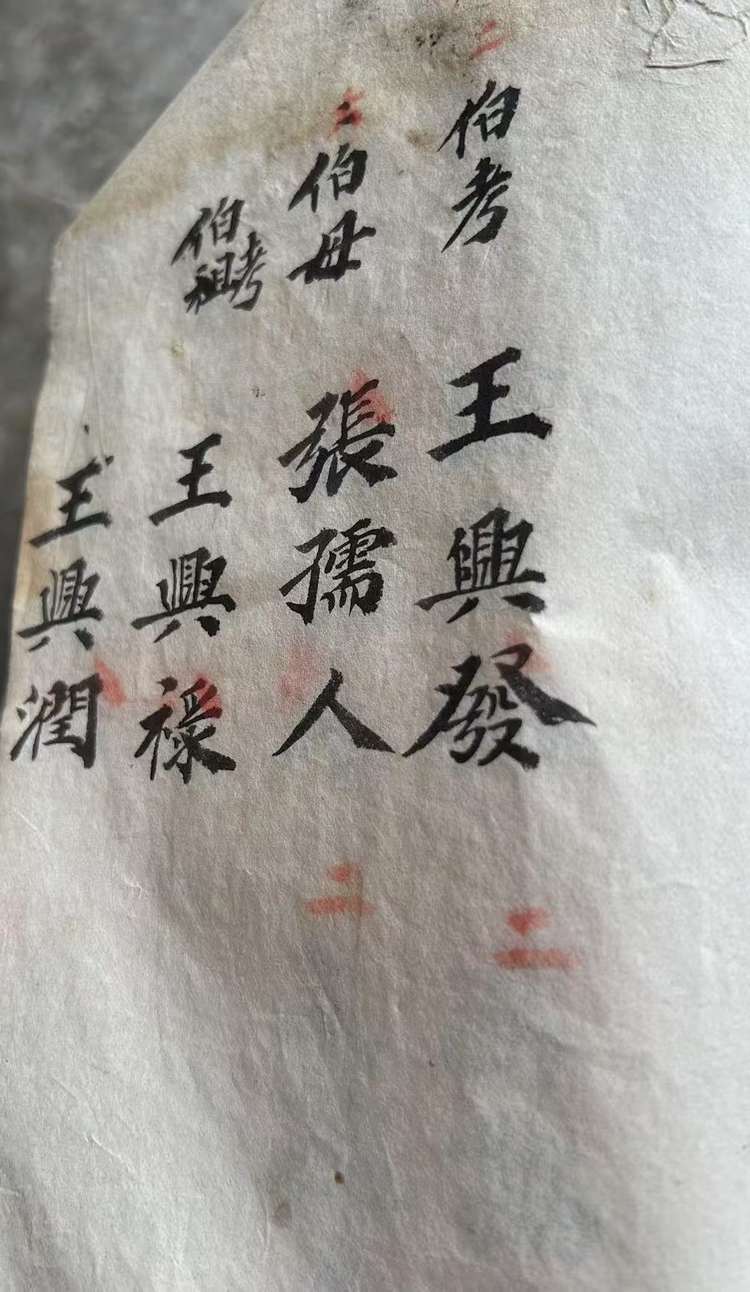 二伯考王興發二
二伯母張孺人二
伯祖考王興祿
王興潤